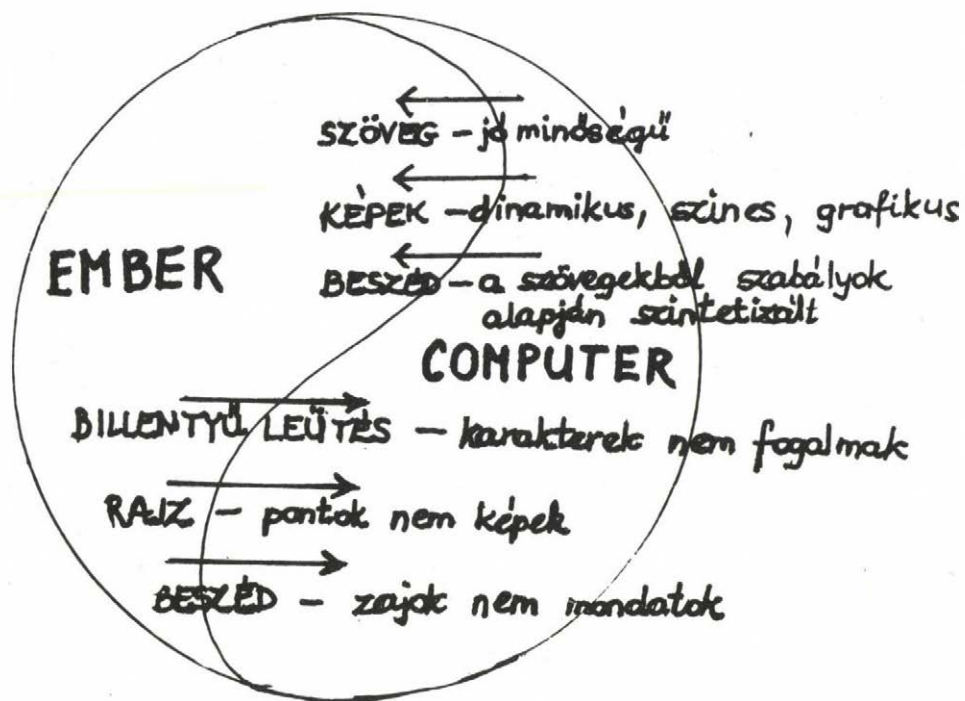 SZÖVEG – jó minőségű
KÉPEK – dinamikus, szines, grafikus
EMBER
BESZÉD – a szövegekből szabályok
alapján szintetizált
COMPUTER
BILLENTYŰ LEÜTÉS – karakterek nem fogalmak
RAJZ – pontok nem képek
BESZÉD – zajok nem mondatok